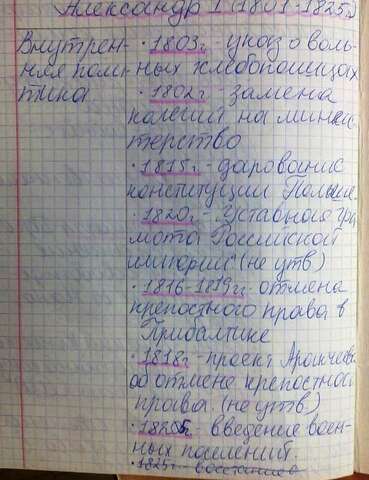 Александр I (1801-1825г.)
Внутрен- · 1803г - указ о воль-
няя поли- ных хлебопошцах
тика · 1802г - замена
колегий на минис
терство
· 1815г - дарование
конституции Польше.
· 1820г - "Уставной гра
мота Российской
империи" (не утв)
· 1816-1819гг отмена
крепостного права в
Прибалтике
· 1818г - проект Аракчеева
об отмене крепостного
права. (не утв)
· 1825. - введение воен-
ных поселений.
· 1825г - восстание